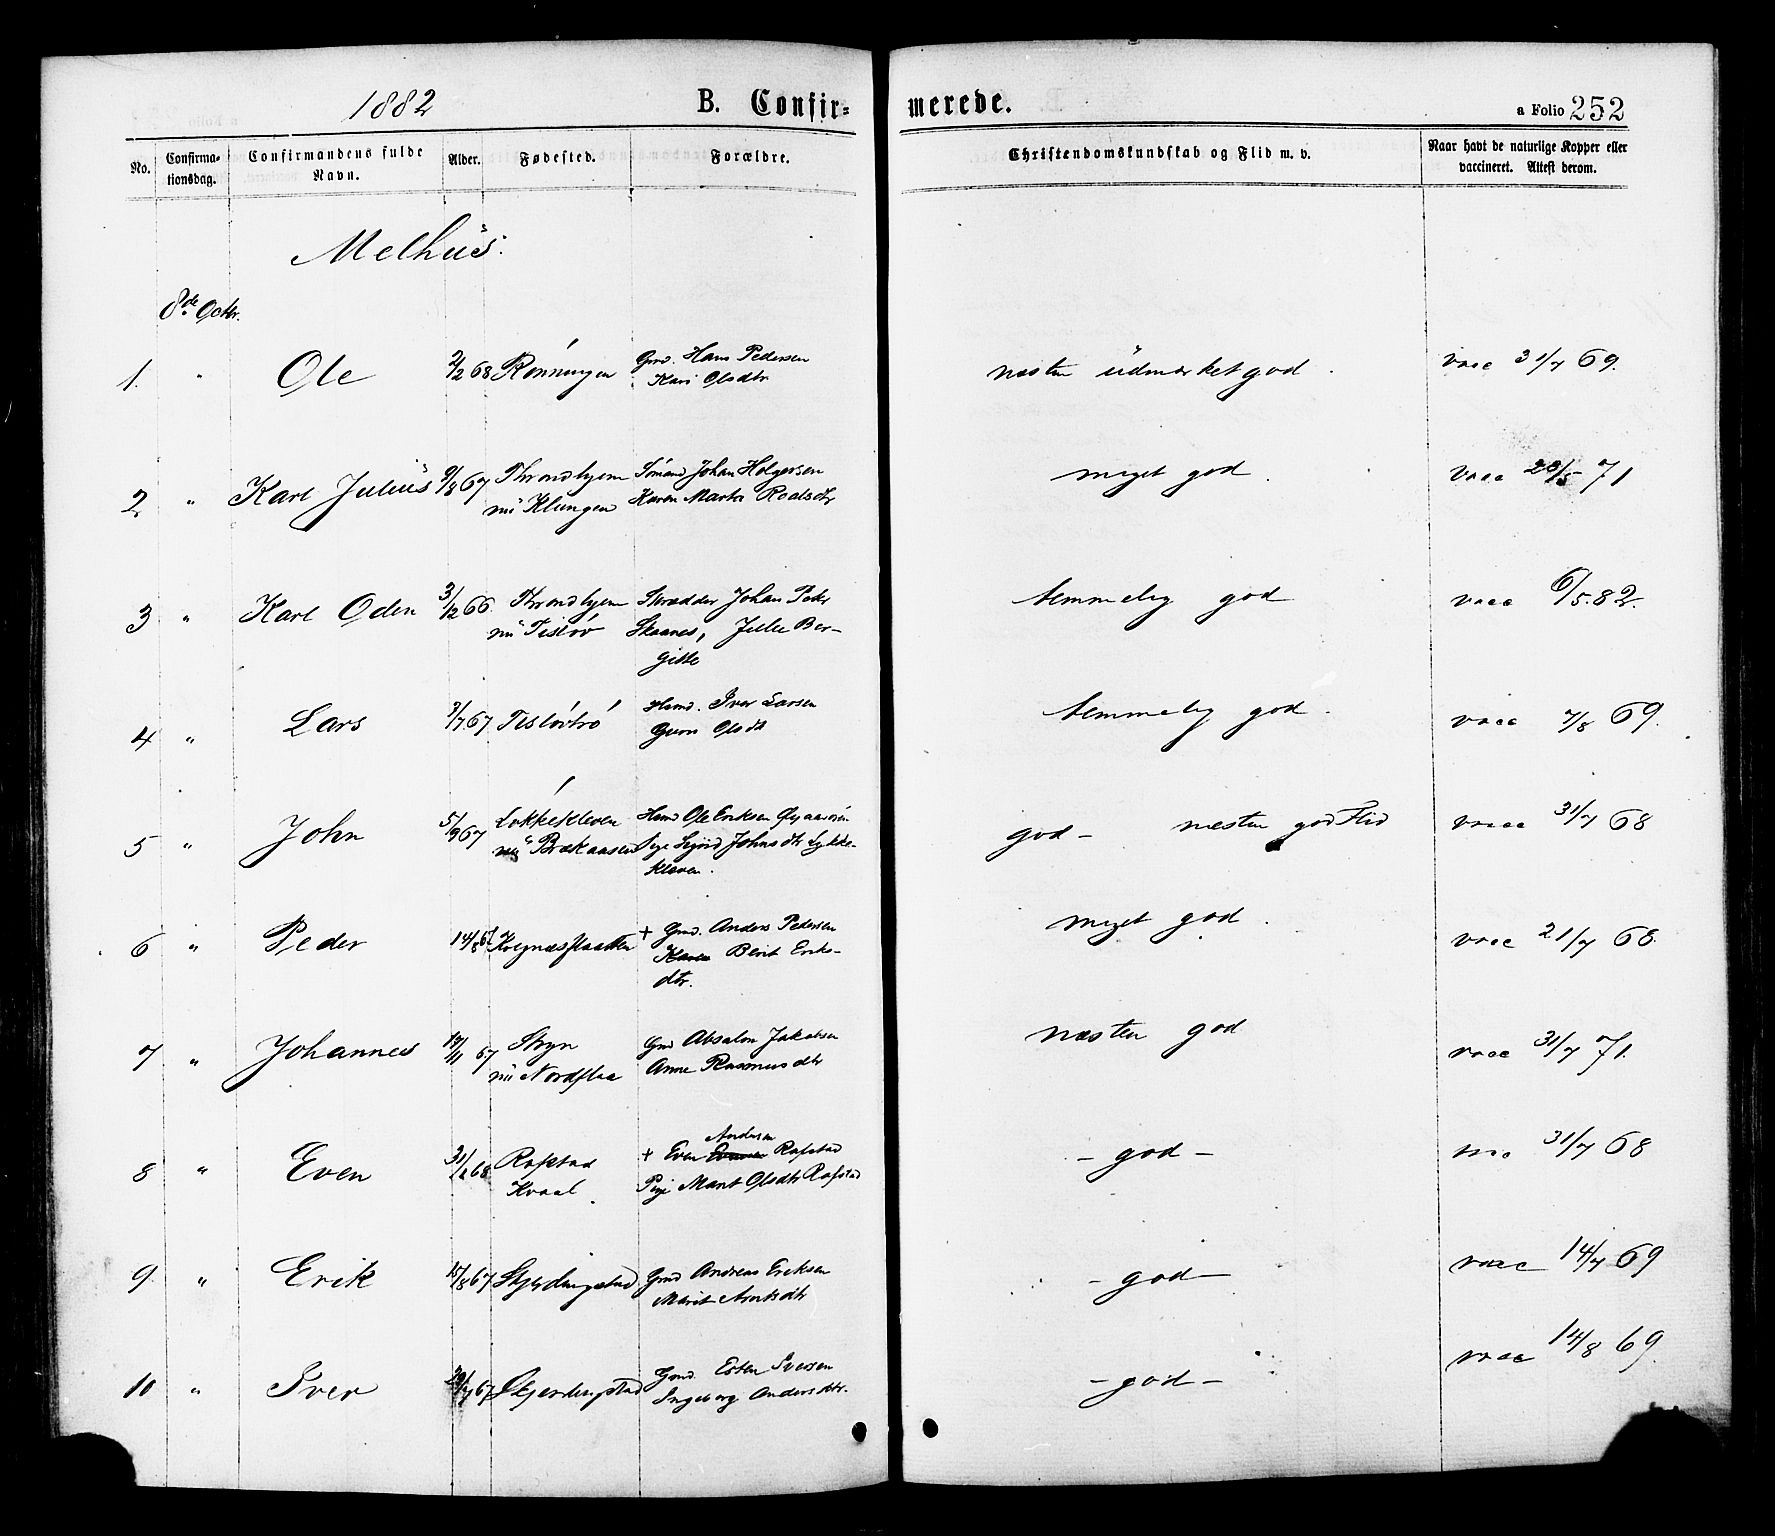 1882 B. Confir- merede. a Folio 252
No. Confirma- tionsdag. Confirmandens fulde Navn. Alder. Fødested. Forældre. Christendomskundskab og Flid m. v. Naar havt de naturlige Kopper eller vaccineret. Attest derom.
Melhus.
8de Octbr.
1. " Ole 2/2 68 Rønningen Gmd. Hans Pedersen næsten udmærket god vacc 31/7 69.
Kari Olsdtr
2 " Karl Julius 9/8 67 Throndhjem Sømand Johan Holgersen meget god. vacc 28/5 71
nu Klungen Karen Marta Roalsdtr
3 " Karl Oden 3/12 66. Throndhjem Skrædder Johan Petr temmelig god vacc 6/5. 82.
nu Tisløv Skaanes, Julie Ber-
gitte
4 " Lars 3/7 67 Husmd. Iver Larsen temmelig god. vacc 7/8 69.
Guru Olsdt
5 " John 5/9 67 Løkkekleven Husmd Ole Eriksen god - næsten god Flid vacc 31/7 68
nu Brækaasen Pige Sigrid Johnsdtr Lykke-
kleven.
6 " Peder 14/8 67 Kregnæsplaatten + Gmd. Anders Pedersen meget god. vacc 21/7 68.
Karen Berit Eriks-
dtr.
7 " Johannes 17/11 67 Stryn Gmd Absalon Jakobsen næsten god vacc 31/7 71.
nu Nordflaa Anne Rasmusdtr
Andersen
8 " Even 31/1 68 Rofstad + Even Rofstad - god - 31/7 68
Kvaal. Pige Marit Olsdtr Rofstad
9. " Erik 15/8 67 Skjerdingstad Gmd Andreas Eriksen - god - vacc 14/7 69
Marit Arntsdtr
10 " Iver 67 Skjerdingstad Gmd. Esten Iversen - god - vacc 14/8 69.
Ingeborg Andersdtr.